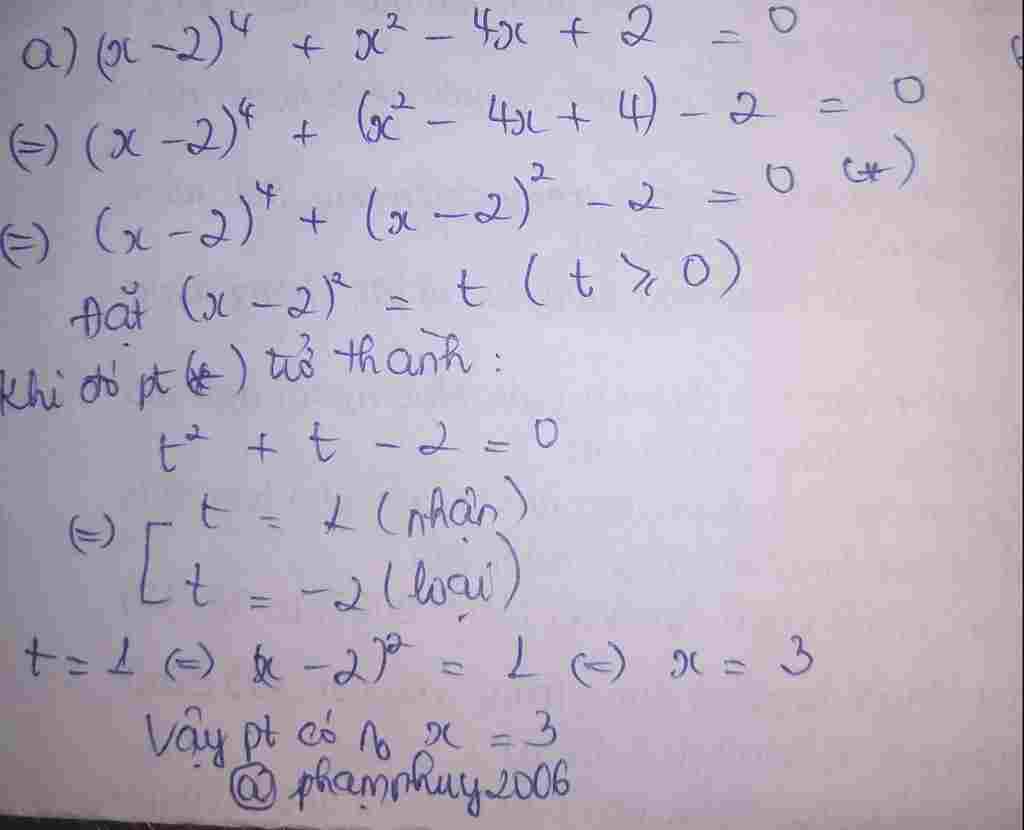 a) (x-2)⁴ + x² - 4x + 2 = 0
(=) (x-2)⁴ + (x² - 4x + 4) - 2 = 0
(=) (x-2)⁴ + (x-2)² - 2 = 0 (*)
Đặt (x-2)² = t ( t ⩾ 0)
Khi đó pt (*) trở thành :
t² + t - 2 = 0
(=) [ t = 1 (nhận)
t = -2 (loại)
t = 1 (=) (x-2)² = 1 (=) x = 3
Vậy pt có no x = 3
@ phamnhuy2006